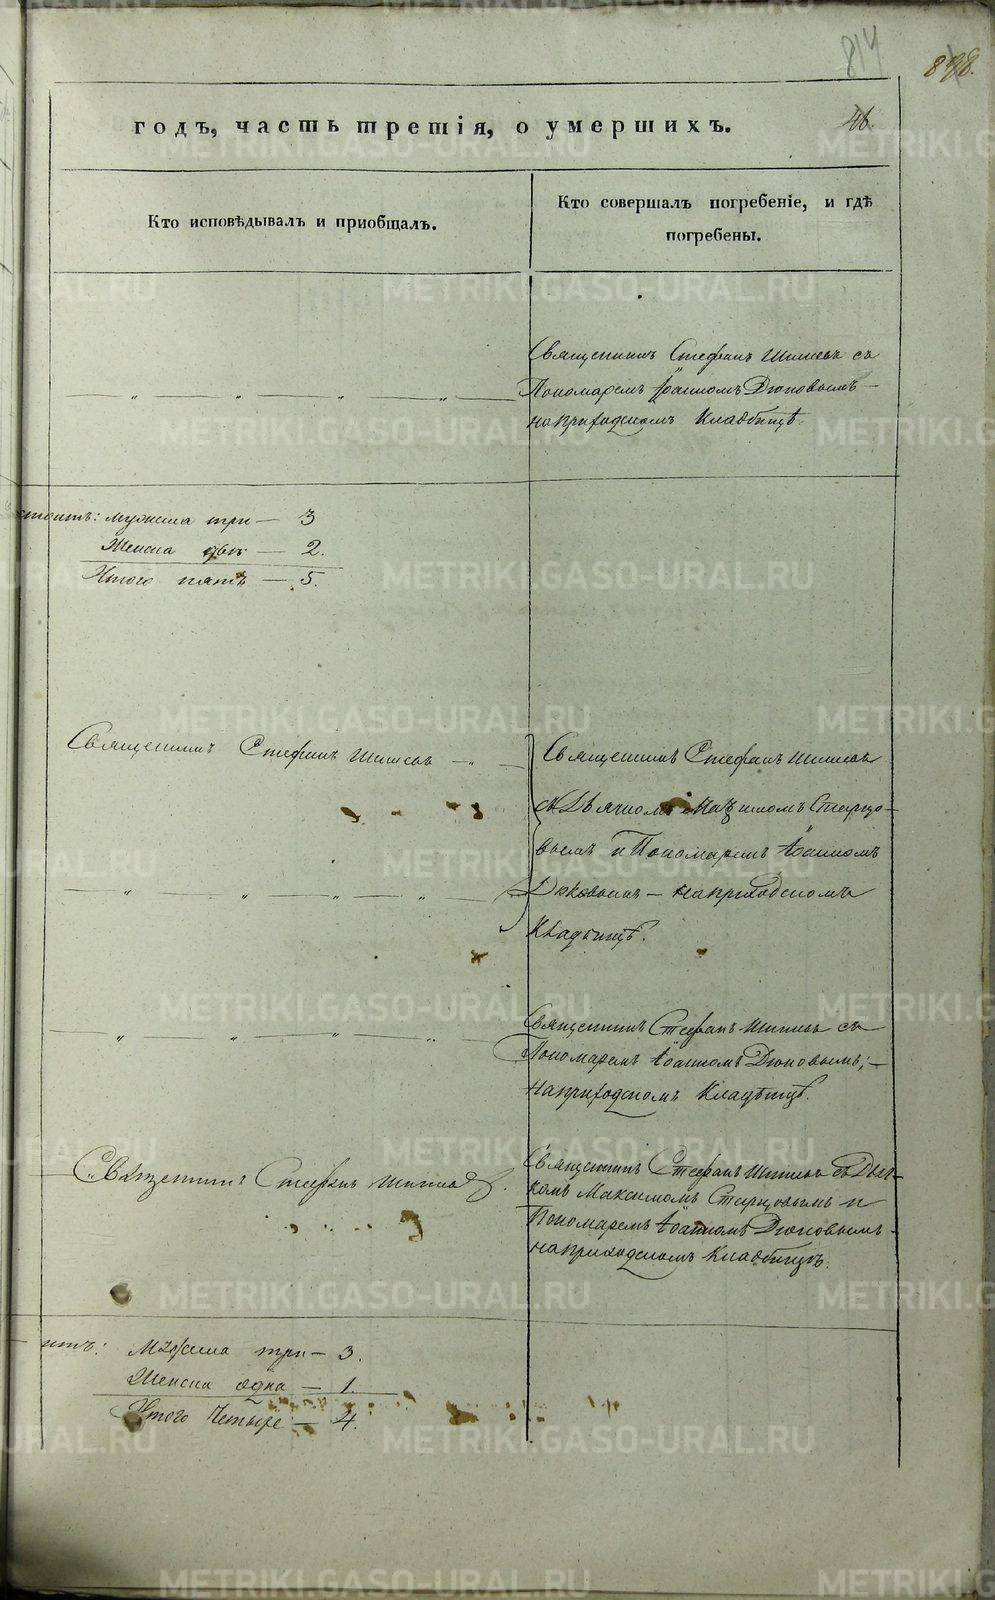 814
898.
годъ, часть третія, о умершихъ.
46.
Кто исповѣдывалъ и приобщалъ.
Кто совершалъ погребеніе, и гдѣ
погребены.
Священникъ Стефанъ Шишевъ съ
Пономаремъ Іоанномъ Дюковымъ —
на приходскомъ Кладбищѣ.
мужска три — 3
Женска двѣ — 2.
Итого пять — 5.
Священникъ Стефанъ Шишевъ — „ —
Священникъ Стефанъ Шишевъ
съ Дьячкомъ Максимомъ Старцо-
вымъ и Пономаремъ Іоанномъ
Дюковымъ — на приходскомъ
Кладбищѣ.
Священникъ Стефанъ Шишевъ съ
Пономаремъ Іоанномъ Дюковымъ; —
на приходскомъ Кладбищѣ.
Священникъ Стефанъ Шишевъ.
Священникъ Стефанъ Шишевъ съ Дьяч-
комъ Максимомъ Старцовымъ и
Пономаремъ Іоанномъ Дюковымъ —
на приходскомъ Кладбищѣ.
Мужска три — 3.
Женска одна — 1.
Итого Четыре — 4.
METRIKI.GASO-URAL.RU